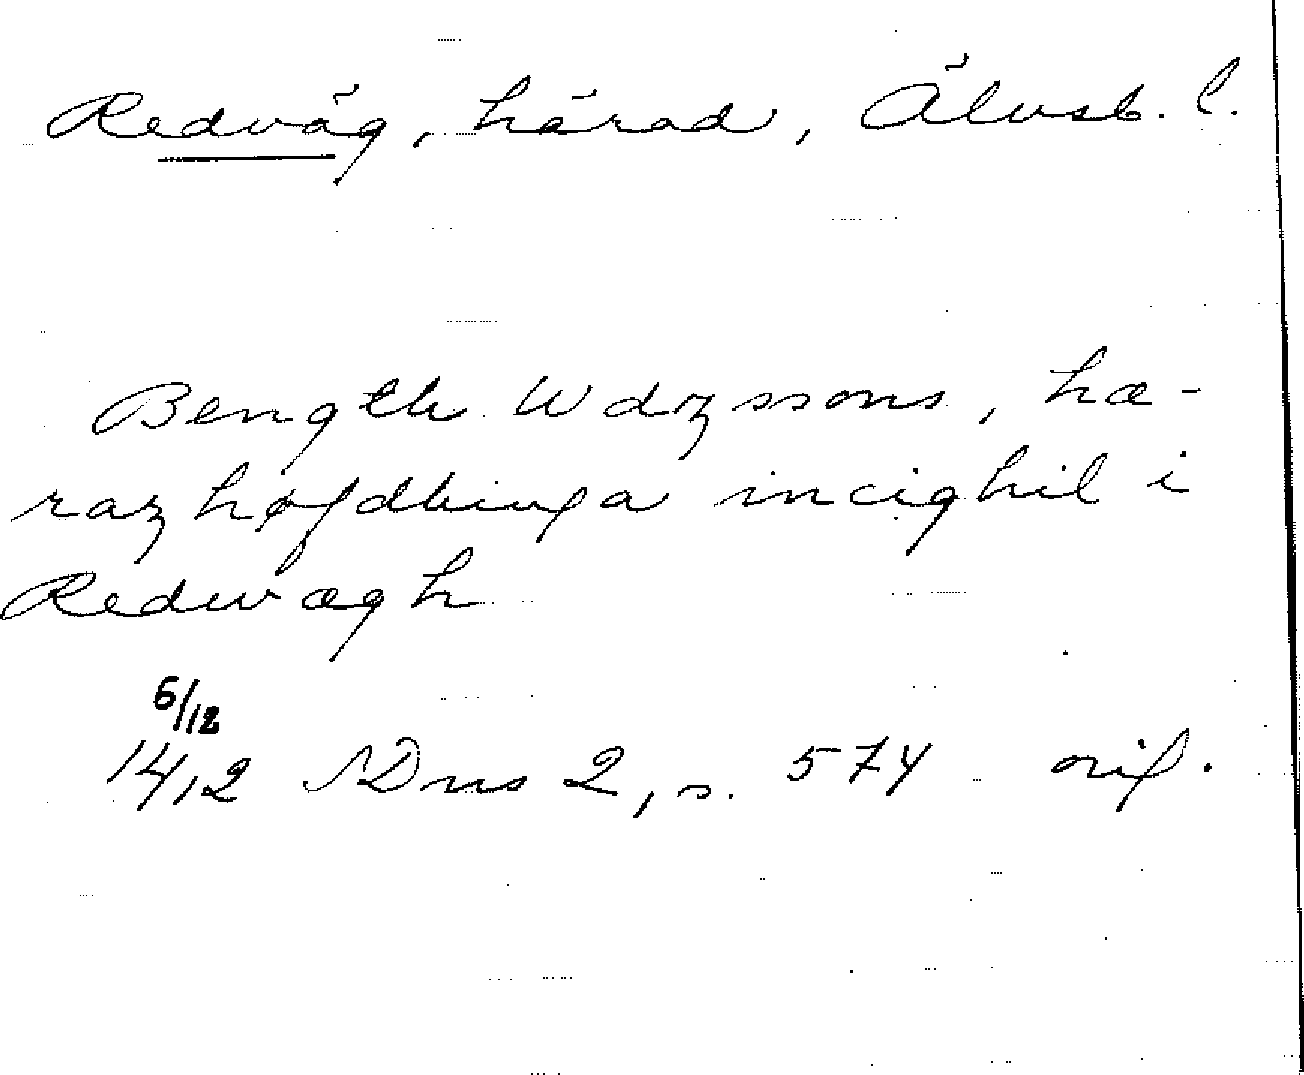 Redväg, härad, Älvsb. l.
Bength Wdzssons, hæ-
razhøfdhinga incighil i
Redwægh
6/12
1412 SDns 2, s. 574 orig.